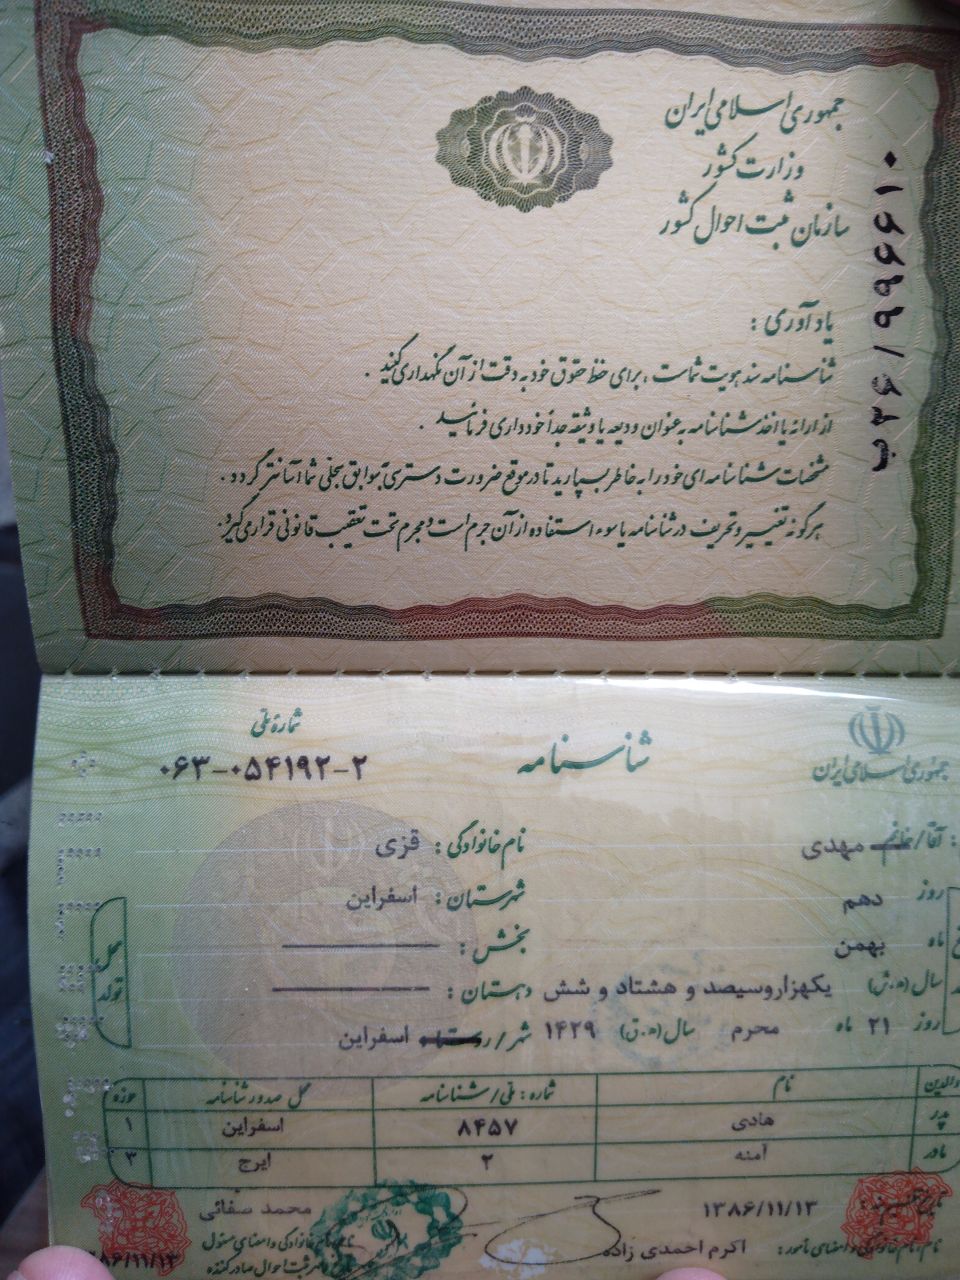 جمهوری اسلامی ایران
وزارت کشور
سازمان ثبت احوال کشور
ب۲۶/۹۹۶۶۱۰
یادآوری :
شناسنامه سند هویت شماست ، برای حفظ حقوق خود به دقت از آن نگهداری کنید .
از ارائه یا اخذ شناسنامه به عنوان ودیعه یا وثیقه جداً خودداری فرمائید .
مشخصات شناسنامه ای خود را به خاطر بسپارید تا در موقع ضرورت دسترسی به سوابق سجلی شما آسانتر گردد .
هرگونه تغییر و تحریف در شناسنامه یا سوء استفاده از آن جرم است و مجرم تحت تعقیب قانونی قرار می گیرد .
جمهوری اسلامی ایران
شناسنامه
شماره ملی
۰۶۳-۰۵۴۱۹۲-۲
آقا/خانم : مهدی نام خانوادگی : قزی
روز دهم شهرستان : اسفراین
ماه بهمن بخش :
سال (ه.ش) یکهزاروسیصد و هشتاد و شش دهستان :
روز ۲۱ ماه محرم سال (ه.ق) ۱۴۲۹ شهر/روستا اسفراین
محل تولد
والدین نام شماره : ملی/شناسنامه محل صدور شناسنامه حوزه
پدر هادی ۸۴۵۷ اسفراین ۱
مادر آمنه ۲ ایرج ۳
تاریخ تنظیم سند : ۱۳۸۶/۱۱/۱۳ محمد صفائی
نام ، نام خانوادگی و امضای مأمور : اکرم احمدی زاده نام ، نام خانوادگی و امضای مسئول
۱۳۸۶/۱۱/۱۳